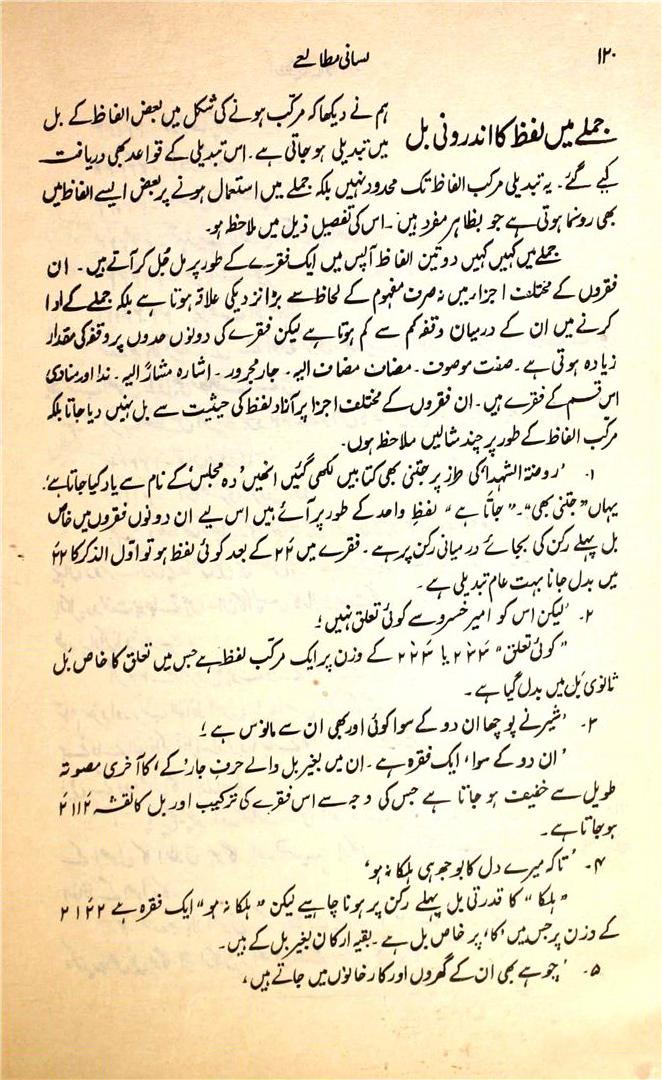 ۱۲۰
لسانی مطالعے
جملے میں لفظ کا اندرونی بل
ہم نے دیکھا کہ مرکب ہونے کی شکل میں بعض الفاظ کے بل
میں تبدیلی ہو جاتی ہے۔ اس تبدیلی کے قواعد بھی دریافت
کیے گئے۔ یہ تبدیلی مرکب الفاظ تک محدود نہیں بلکہ جملے میں استعمال ہونے پر بعض ایسے الفاظ میں
بھی رونما ہوتی ہے جو بظاہر مفرد ہیں۔ اس کی تفصیل ذیل میں ملاحظہ ہو۔
جملے میں کہیں کہیں دو تین الفاظ آپس میں ایک فقرے کے طور پر مل جُل کر آتے ہیں۔ ان
فقروں کے مختلف اجزا میں نہ صرف مفہوم کے لحاظ سے بڑا نزدیکی علاقہ ہوتا ہے بلکہ جملے کے ادا
کرنے میں ان کے درمیان وقفہ کم سے کم ہوتا ہے لیکن فقرے کی دونوں حدوں پر وقفہ کی مقدار
زیادہ ہوتی ہے۔ صفت موصوف۔ مضاف مضاف الیہ۔ جار مجرور۔ اشارہ مشارٌ الیہ۔ ندا اور منادیٰ
اس قسم کے فقرے ہیں۔ ان فقروں کے مختلف اجزا پر آزاد لفظ کی حیثیت سے بل نہیں دیا جاتا بلکہ
مرکب الفاظ کے طور پر چند مثالیں ملاحظہ ہوں۔
۱۔ ’روضۃ الشہدا کی طرز پر جتنی بھی کتابیں لکھی گئیں انھیں ’دہ مجلس‘ کے نام سے یاد کیا جاتا ہے‘
یہاں ”جتنی بھی“۔ ”جاتا ہے“ لفظِ واحد کے طور پر آئے ہیں اس لیے ان دونوں فقروں میں خاص
بل پہلے رکن کی بجائے درمیانی رکن پر ہے۔ فقرے میں ۲۲ کے بعد کوئی لفظ ہو تو اوّل الذکر کا ۲۲
میں بدل جانا بہت عام تبدیلی ہے۔
۲۔ ’لیکن اس کو امیر خسرو سے کوئی تعلق نہیں‘؛
”کوئی تعلق“ کے وزن پر ایک مرکب لفظ ہے جس میں تعلق کا خاص بَل
ثانوی بَل میں بدل گیا ہے۔
۳۔ ’شیر نے پوچھا ان دو کے سوا کوئی اور بھی ان سے مانوس ہے‘؛
’ان دو کے سوا‘ ایک فقرہ ہے۔ ان میں بغیر بل والے حرفِ جار ’کے‘ کا آخری مصوتہ
طویل سے خفیف ہو جاتا ہے جس کی وجہ سے اس فقرے کی ترکیب اور بل کا نقشہ ۲ ۲ ۱ ۱ ۲
ہو جاتا ہے۔
۴۔ ’تاکہ میرے دل کا بوجھ ہی ہلکا نہ ہو‘
”ہلکا“ کا قدرتی بل پہلے رکن پر ہونا چاہیے لیکن ”ہلکا نہ ہو“ ایک فقرہ ہے ۲ ۲ ۱ ۲
کے وزن پر جس میں ’کا‘ پر خاص بل ہے۔ بقیہ ارکان بغیر بل کے ہیں۔
۵۔ ’چوہے بھی ان کے گھروں اور کارخانوں میں جاتے ہیں‘